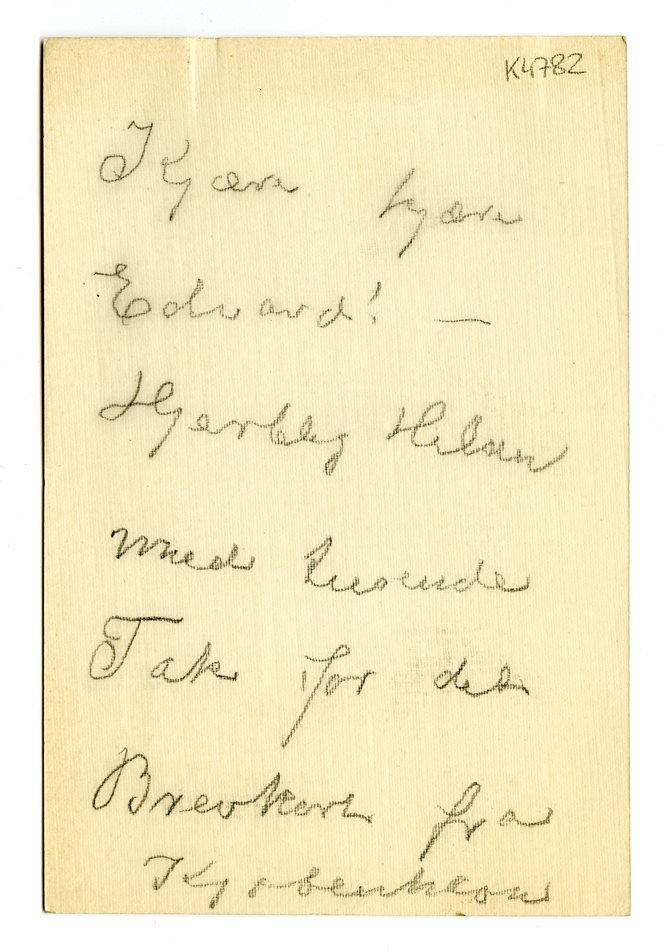 K4782
Kjære kjære
Edvard! —
Hjertelig Hilsen
med tusende
Tak for det
Brevkort fra
Kjøbenhavn